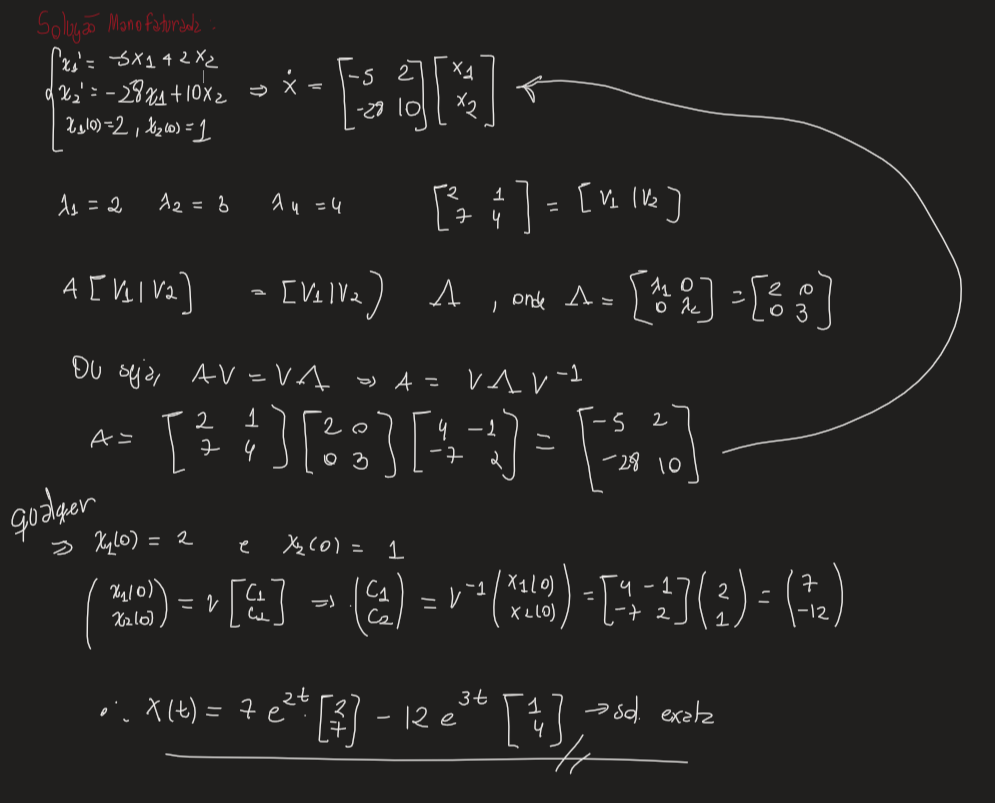 Solução Manofaturada.
x₁' = -5x₁ + 2x₂
x₂' = -28x₁ + 10x₂ ⇒ ẋ = [-5 2; -28 10] [x₁; x₂]
x₁(0) = 2, x₂(0) = 1
λ₁ = 2 λ₂ = 3 λ₄ = 4 [2 1; 7 4] = [V₁ | V₂]
A [V₁ | V₂] = [V₁ | V₂] Λ, onde Λ = [λ₁ 0; 0 λ₂] = [2 0; 0 3]
Ou seja, AV = VΛ ⇒ A = VΛV⁻¹
A = [2 1; 7 4] [2 0; 0 3] [4 -1; -7 2] = [-5 2; -28 10]
qualquer
⇒ x₁(0) = 2 e x₂(0) = 1
(x₁(0); x₂(0)) = V [C₁; C₂] ⇒ (C₁; C₂) = V⁻¹ (x₁(0); x₂(0)) = [4 -1; -7 2] (2; 1) = (7; -12)
∴ X(t) = 7e²ᵗ [2; 7] - 12e³ᵗ [1; 4] → sol. exata